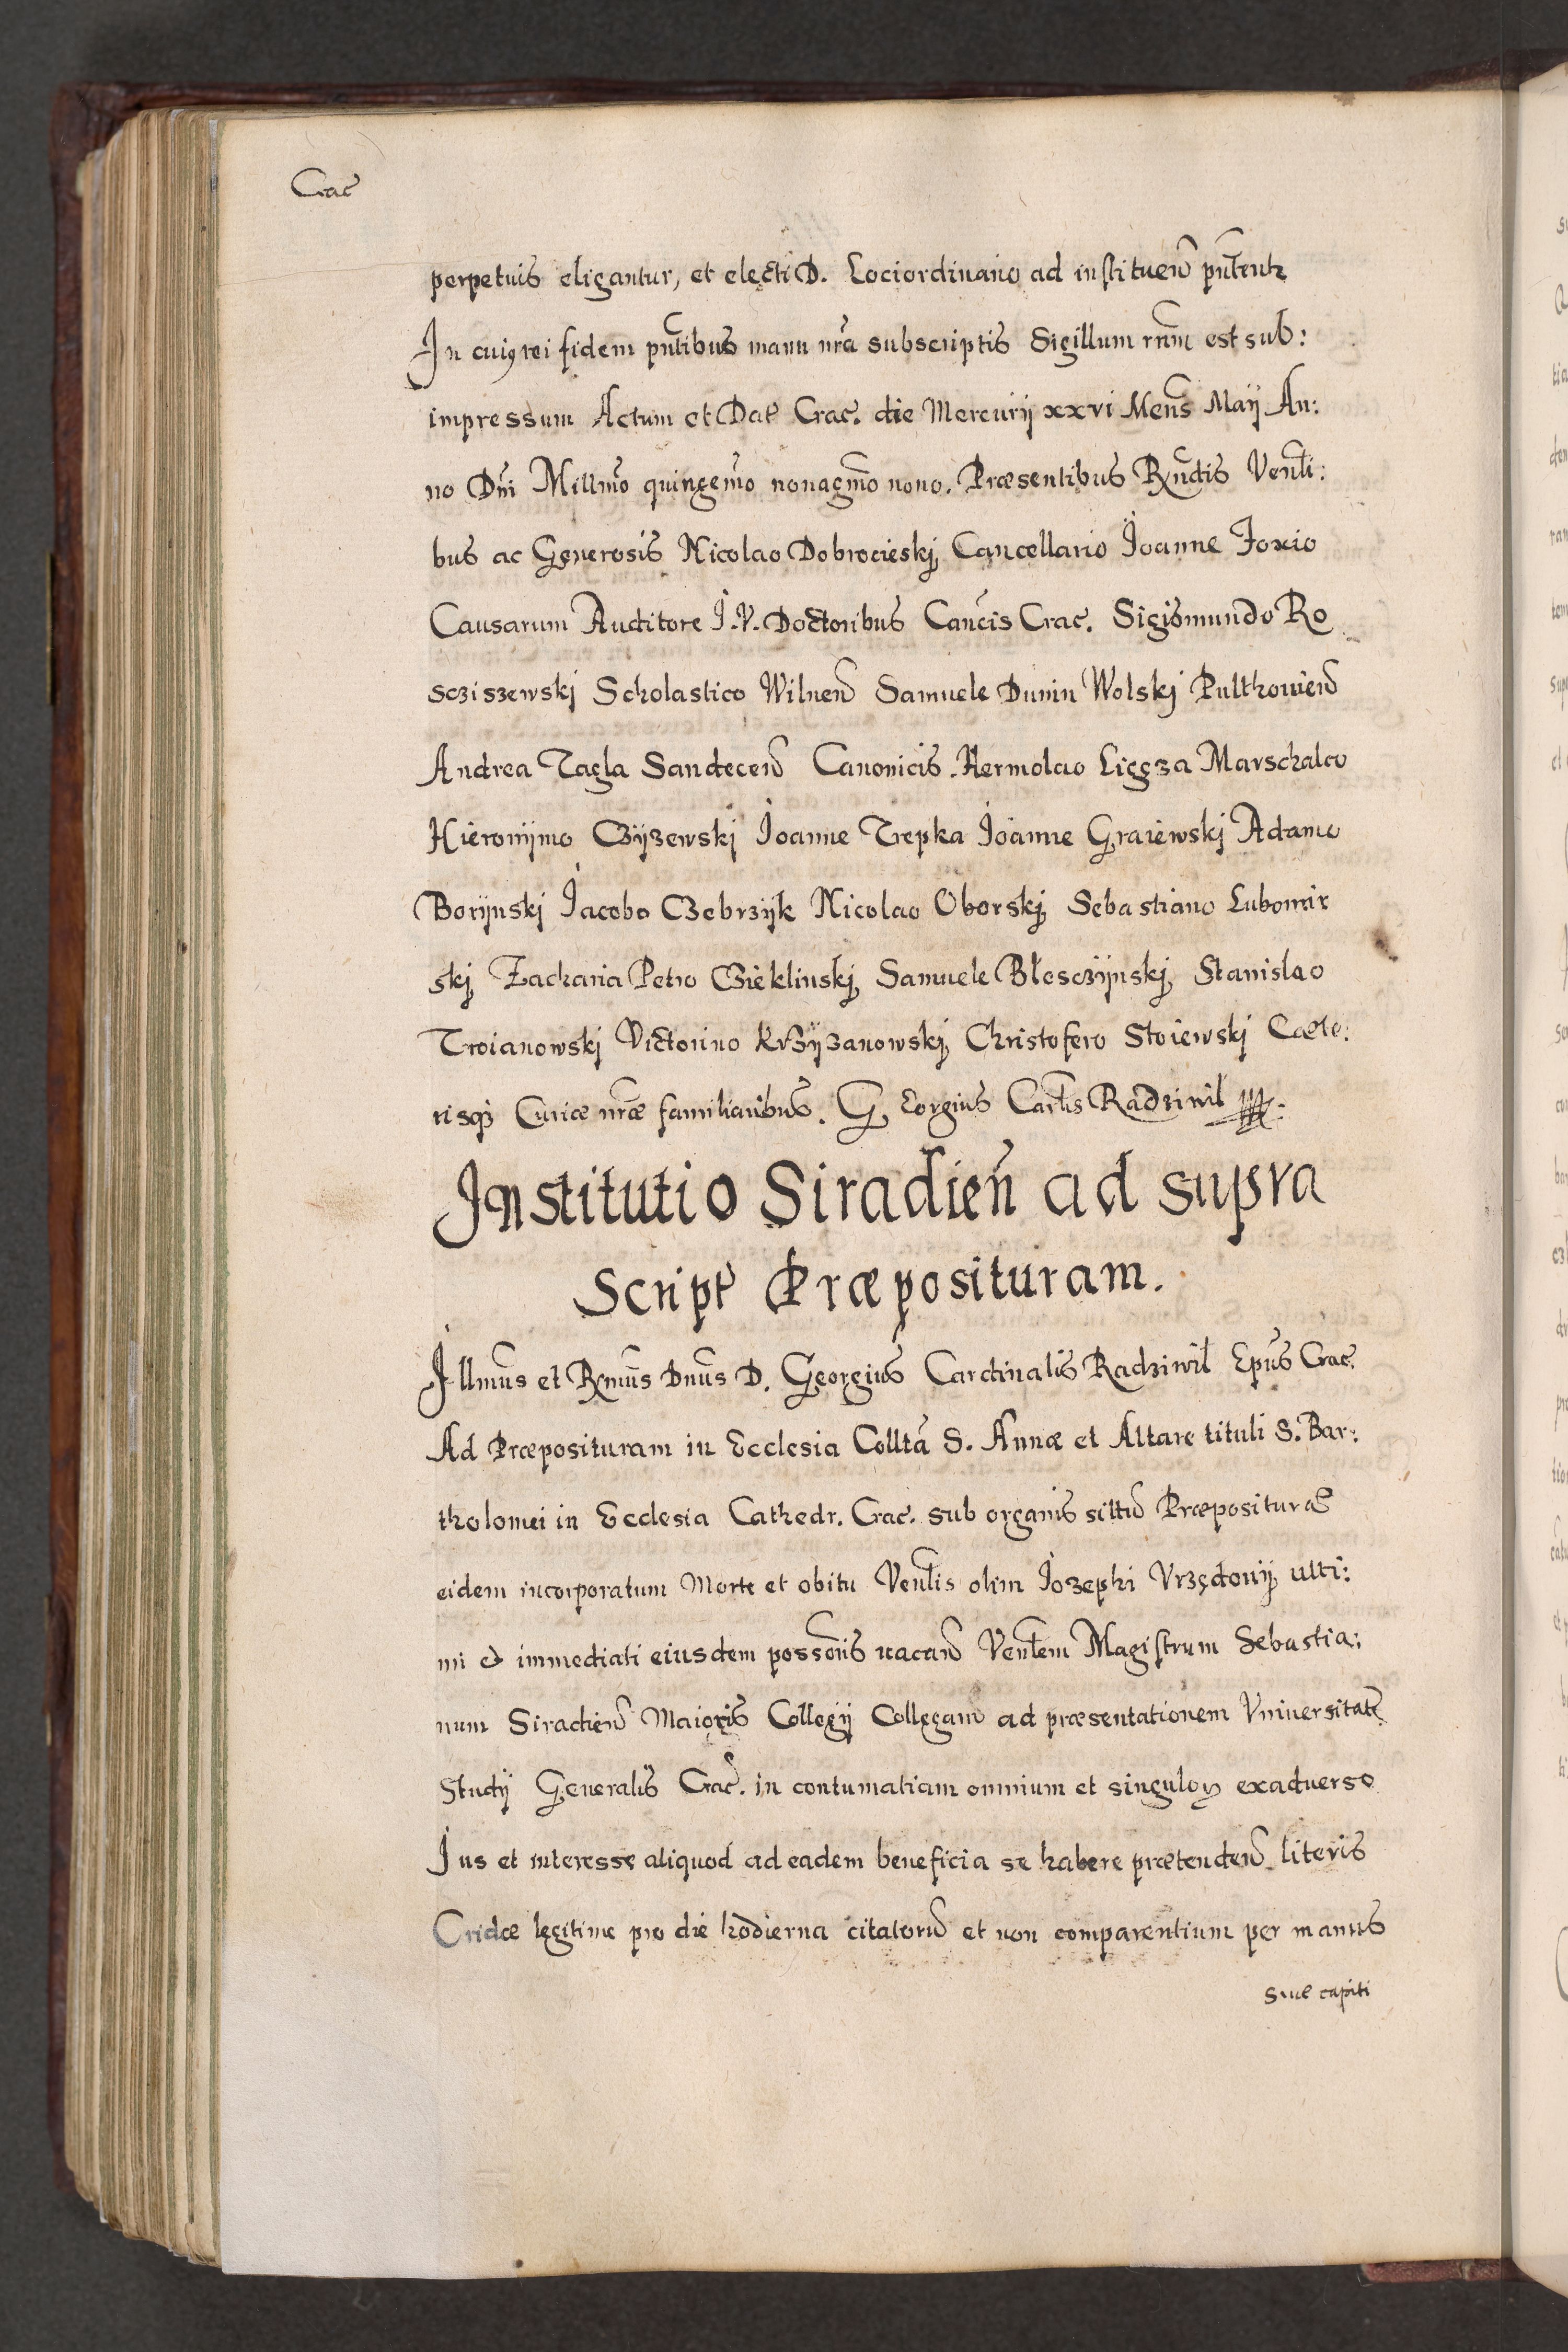 Crac
perpetuis eligantur, et electi D. Lociordinario ad instituen̄ pn̄tentr
In cuiꝰ rei fidem pn̄tibus manu nr̄a subscriptis Sigillum nr̄m est sub:
impressum Actum et Dat Crac. die Mercurij xxvi Mens̄ Maij An:
no Dn̄i Millm̄o quingem̄o nonagm̄o nono. Præsentibus Rn̄dis Venl̄i:
bus ac Generosis Nicolao Dobrocieskj Cancellario Ioanne Foxio
Causarum Auditore I.V. Doctoribus Canc̄is Crac. Sigismundo Ro
scziszewskj Scholastico Wilnen̄ Samuele Dunin Wolskj Pulthovien̄
Andrea Tagla Sandecen̄ Canonicis. Hermolao Ligęza Marschalco
Hieronijmo Czijzewskj Ioanne Trepka Ioanne Graiewskj Adamo
Borijnskj Iacobo Czebrzijk Nicolao Oborskj Sebastiano Lubomir
skj Zacharia Petro Czieklinskj Samuele Błosczijnskj Stanislao
Troianowskj Victorino Krzijzanowskj Christofero Stoiewskj Cæte:
risqꝫ Curiæ nr̄æ familiaribus. Georgius Carl̄is Radziwil
Institutio Siradien̄ ad supra
Script Præposituram.
Illm̄us et Rm̄us Dn̄us D. Georgius Cardinalis Radziwil Ep̄us Crac.
Ad Præposituram in Ecclesia Collta᷄ S. Annæ et Altare tituli S. Bar:
tholomei in Ecclesia Cathedr. Crac. sub organis sittū Præposituræ
eidem incorporatum Morte et obitu Venl̄is olim Iozephi Vrzędovij ulti:
mi & immediati eiusdem posson̄is vacan̄ Venl̄em Magistrum Sebastia:
num Siradien̄ Maioris Collegij Collegam ad præsentationem Vniversitatē
Studij Generalis Crac. in contumatiam omnium et singuloꝝ exadverso
Ius et interesse aliquod ad eadem beneficia se habere prætenden̄ literis
Cridæ legitime pro die hodierna citatorū et non comparentium per manus
sive capiti